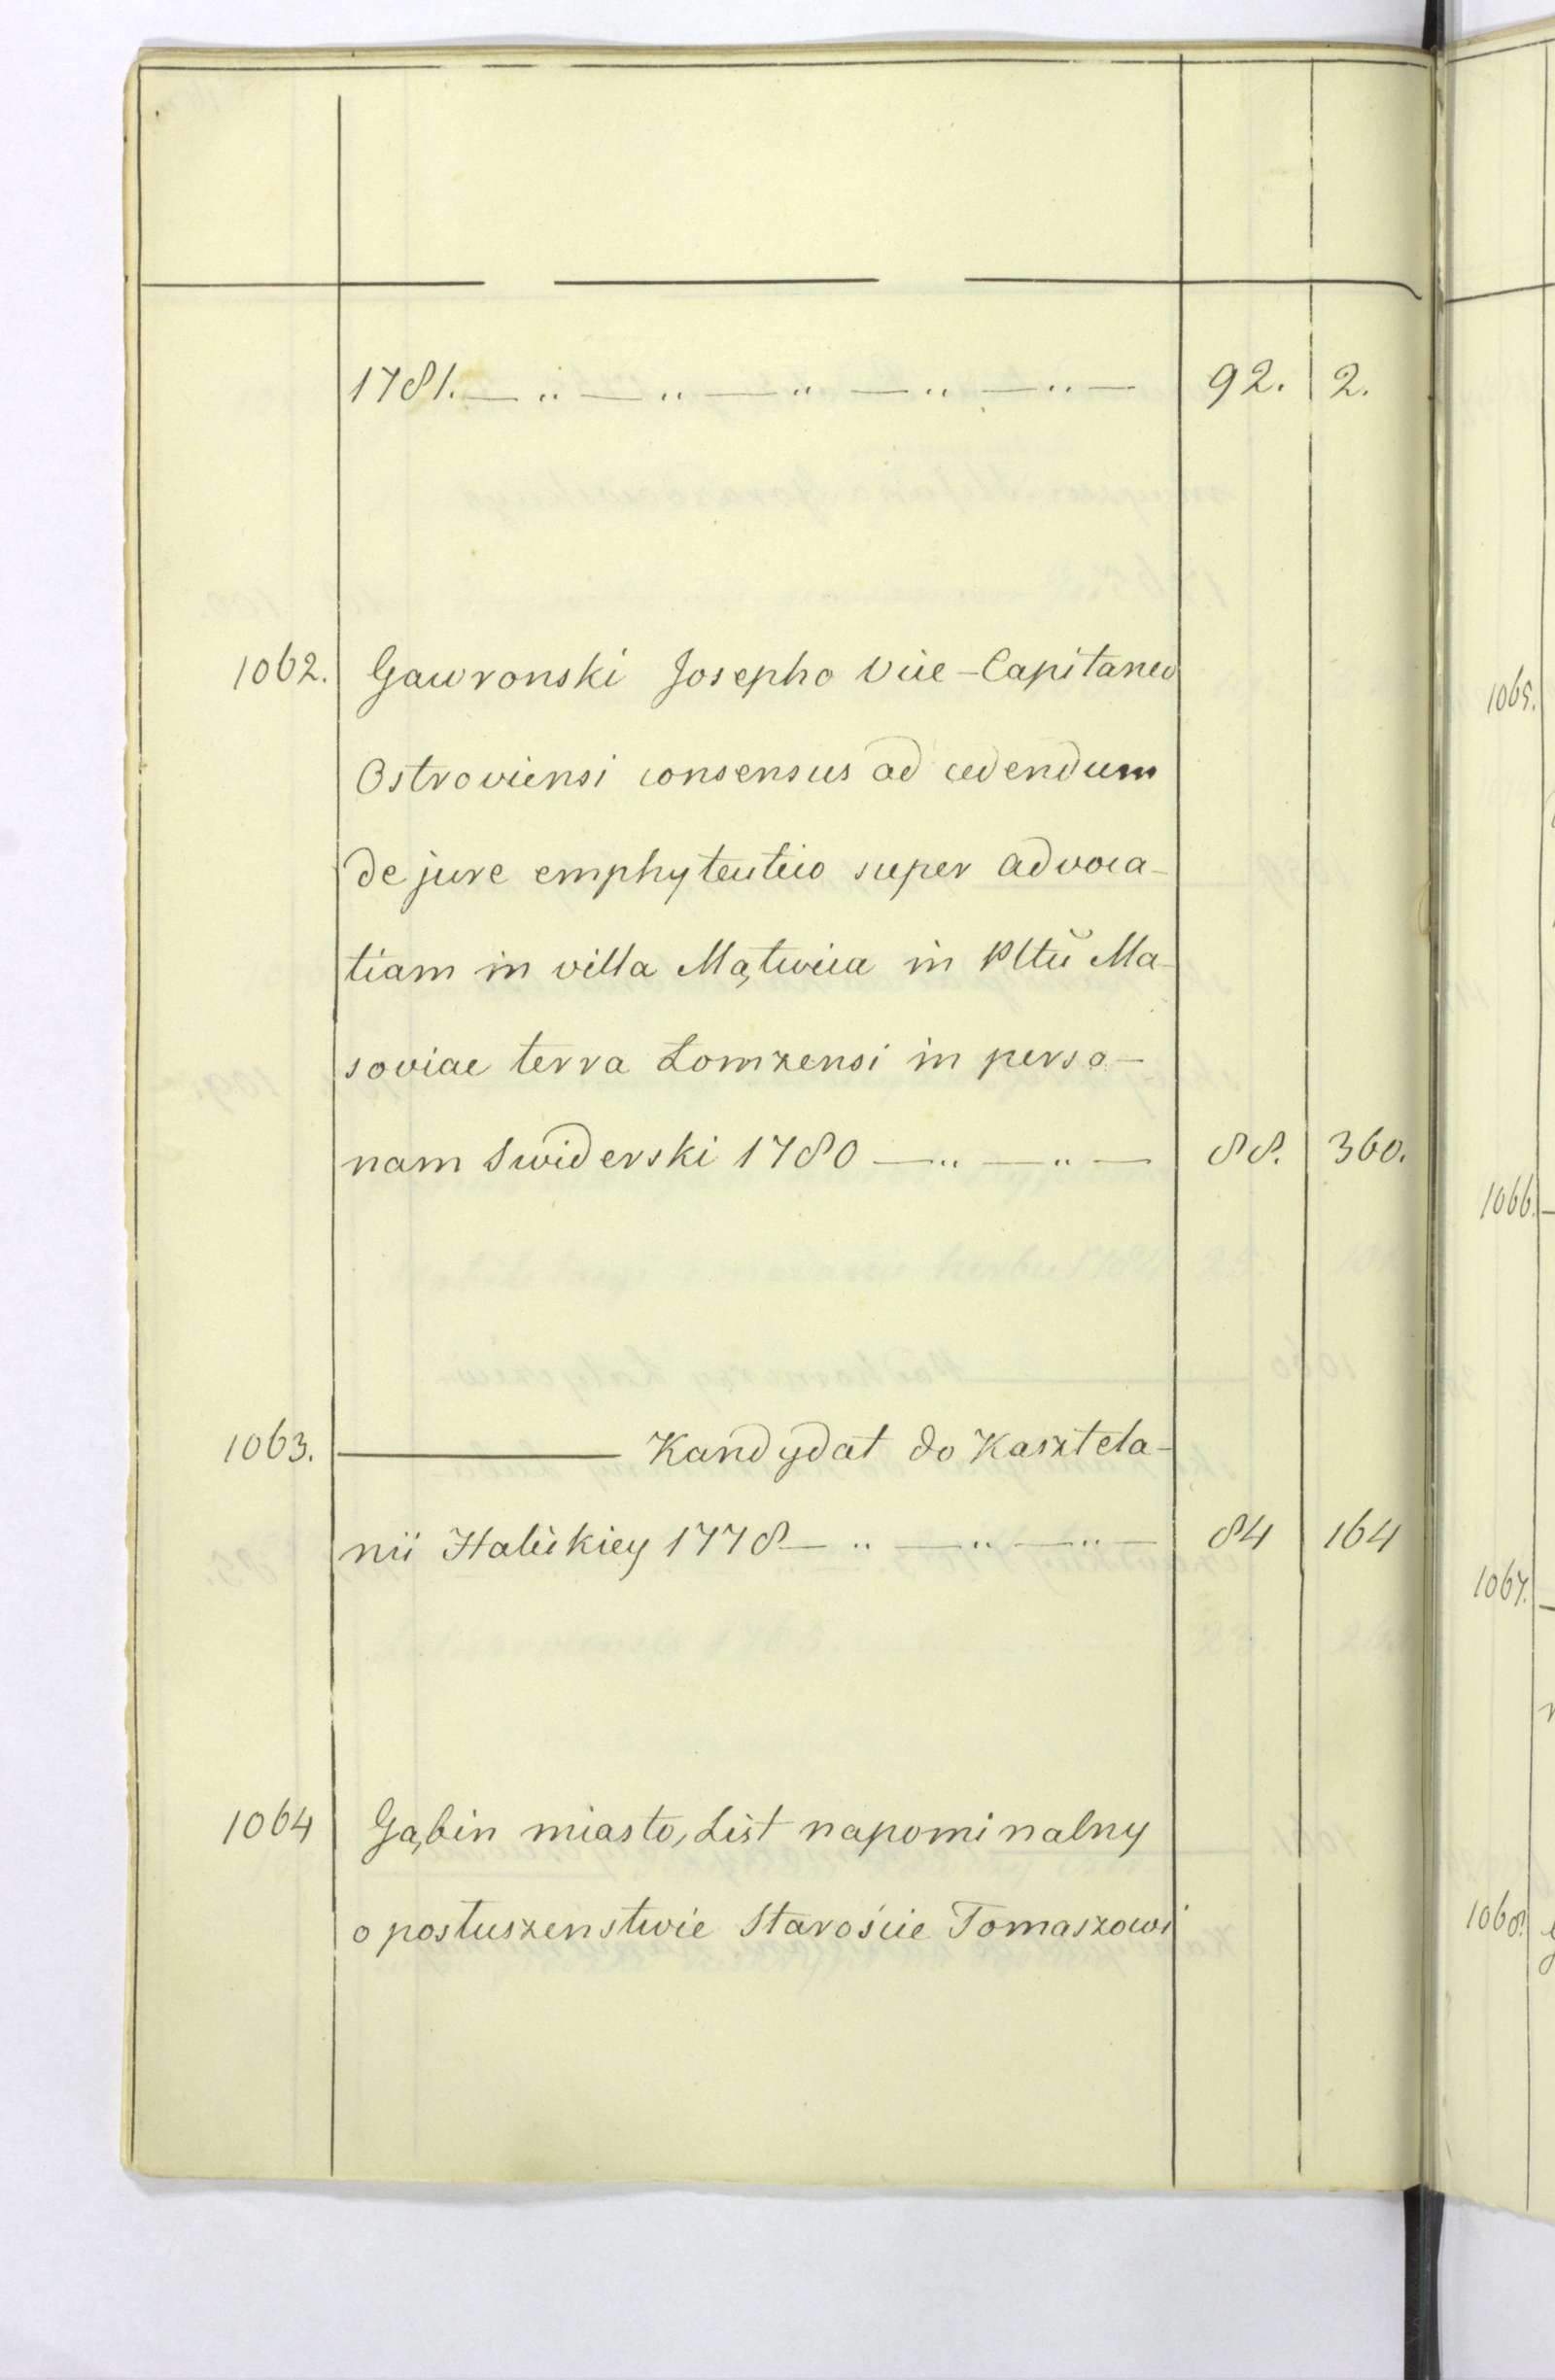 1781. — " — " — " — " — " — 92. 2.
1062. Gawronski Josepho Vice-Capitaneo
Ostroviensi consensus ad cedendum
de jure emphyteutico super advoca-
tiam in villa Mątwica in Pltu Ma-
soviae terra Lomzensi in perso-
nam Swiderski 1780 — " — " — 88. 360.
1063. ——— Kandydat do Kasztela-
nii Halickiey 1778 — " — " — " — 84 164
1064 Gąbin miasto, List napominalny
o postuszenstwie Staroście Tomaszowi
1065.
1066.
1067.
1068.